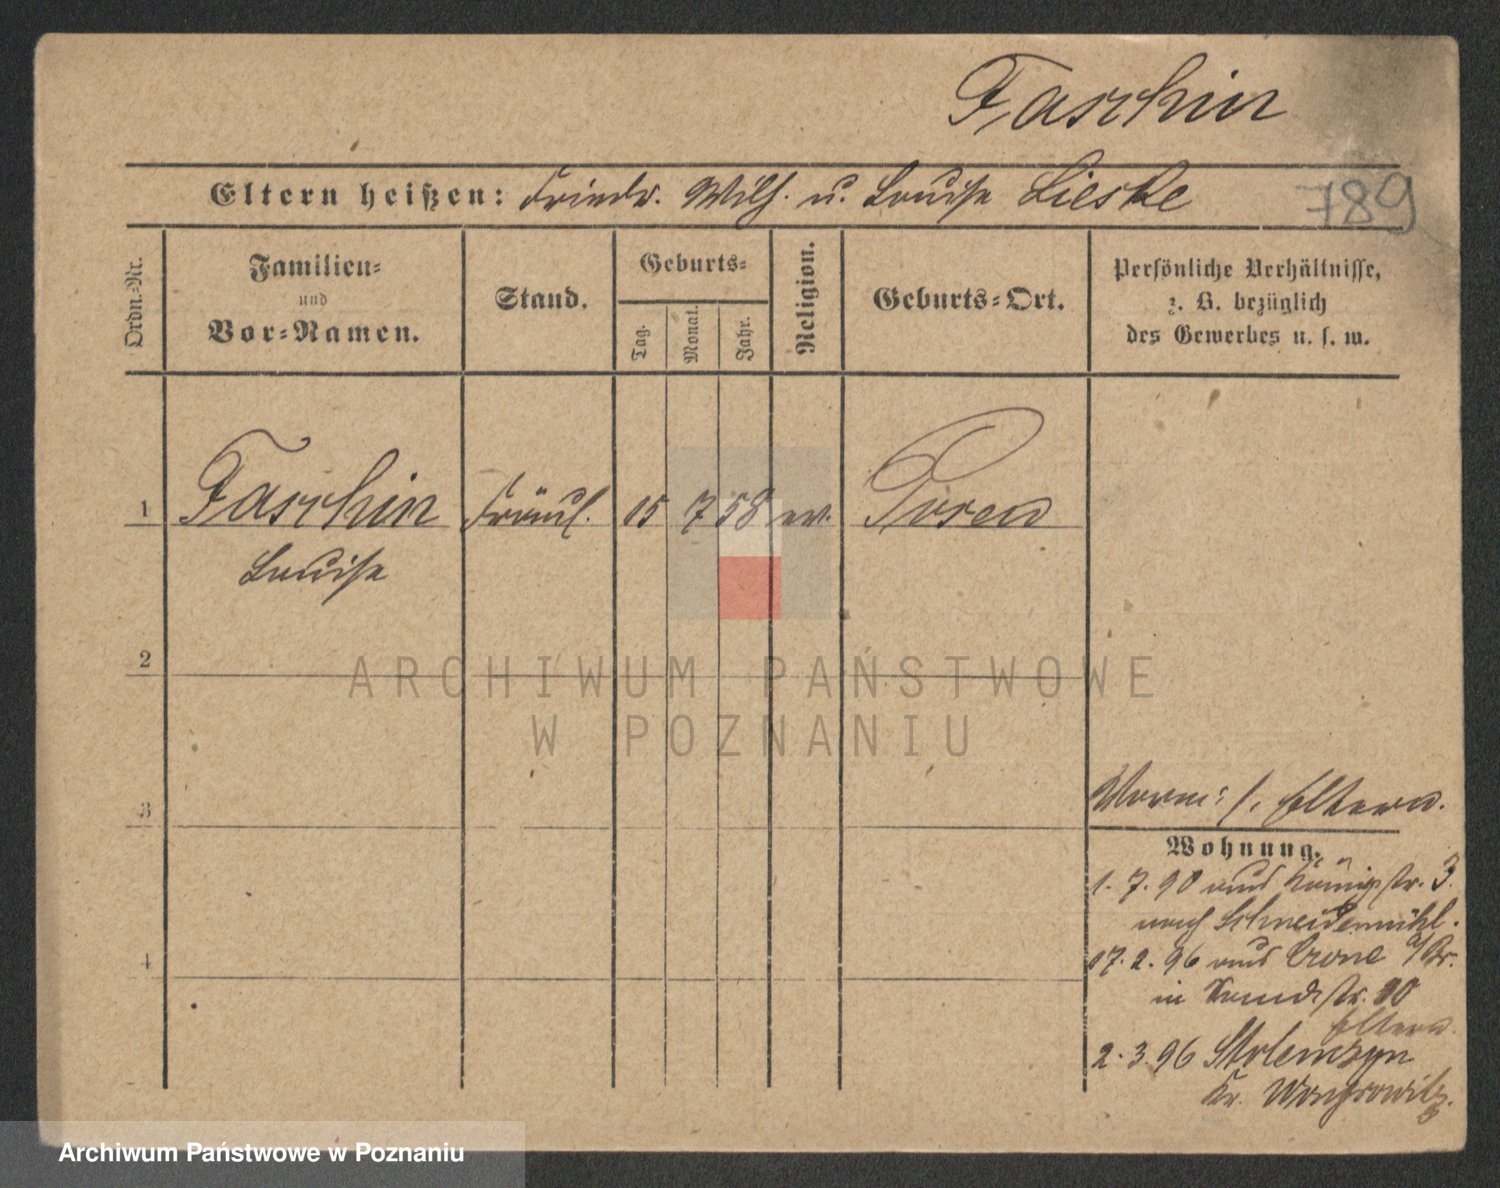 Faschin
Eltern heißen: Friedr. Wilh. u. Louise Lieske
789
Ordn.-Nr.
Familien-
und
Vor-Namen.
Stand.
Geburts-
Tag.
Monat.
Jahr.
Religion.
Geburts-Ort.
Persönliche Verhältnisse,
z. B. bezüglich
des Gewerbes u. s. w.
1 Faschin Fräul. 15 7 58 ev. Posen
Louise
2
ARCHIWUM PAŃSTWOWE
W POZNANIU
3
Eltern.
Wohnung.
1. 7. 90 aus Königstr. 3.
nach Schneidemühl.
17. 2. 96 aus Crone a/Br.
4
in
Eltern.
2. 3. 96
Kr. Wongrowitz.
Archiwum Państwowe w Poznaniu